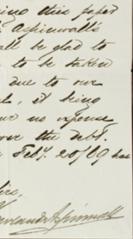 ing this paper
Aspinwall's
all be glad to
to be taken
due to our
it being
our no expense
over the debt.
Feby. 20/69 has
Howland & Aspinwall